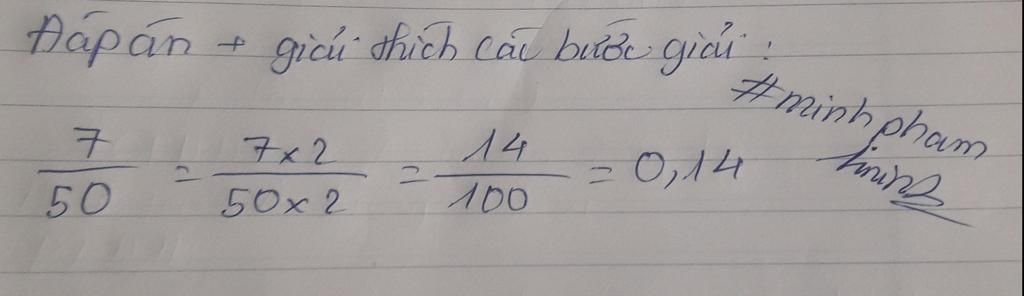 Đáp án + giải thích các bước giải :
#minhpham
7/50 = 7x2/50x2 = 14/100 = 0,14